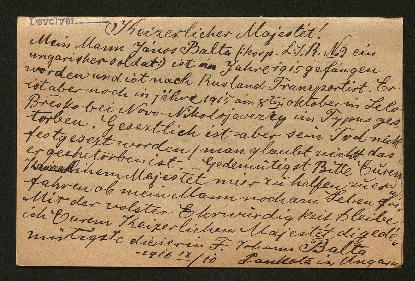 Devolver
Keizerlicher Majestét!
Mein Mann János Balta (korp. L.I.R. No 2 ein
ungarisher soldat) ist im Jahre 1915 gefangen
worden und ist nach Rusland Transportirt. Er
ist aber noch in jähre 1915 am 8 oktober in Selo
bei Novo Nikolajevszky in Typus ges
torben. Gesezlich ist aber sein Tod nicht
festgesezt worden, man glaubt nicht das
er gestorben ist. Gedemütigst Bite Euren
Majestet mier zu helfen zu er
fahren ob mein Mann noch am Leben sei.
Mit der volster Ehrwürdigkeit Bleibe
ich Eurem Keizerlichem Majestet di gede
mütigste dienerin F. Johann Balta
1916 IX/10 Pankota in Ungarn